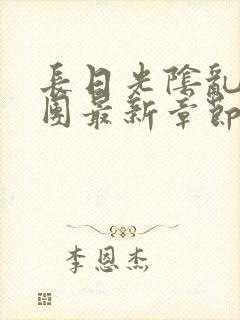 長日光陰亂
團最新章節
李恩杰